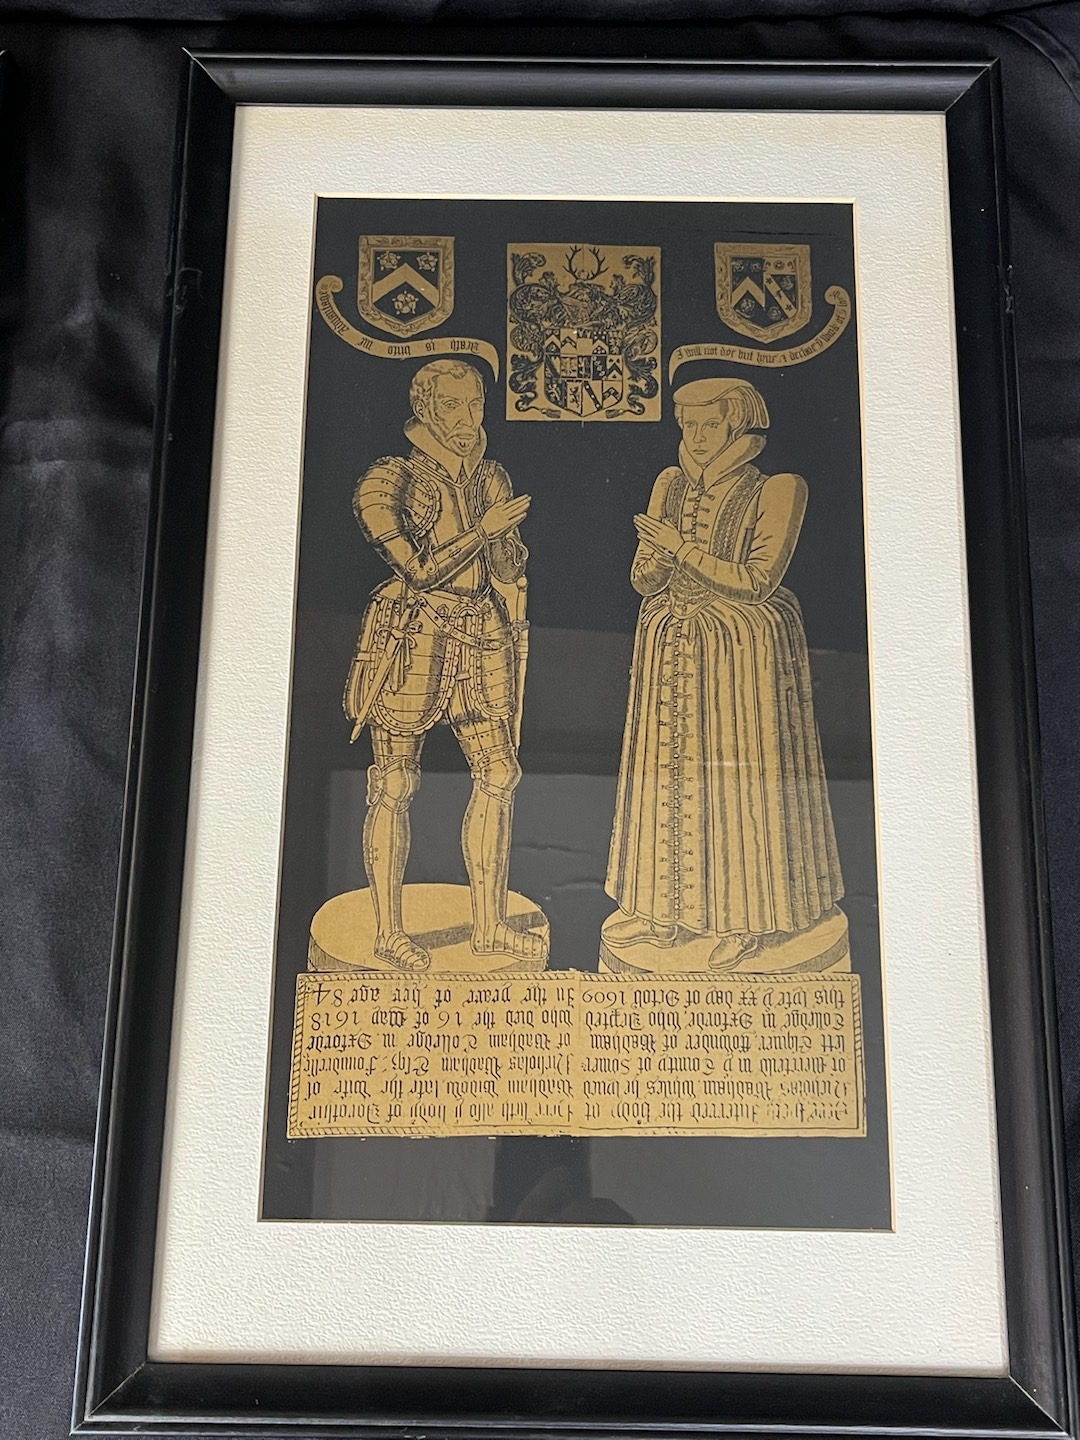 Death is vnto me Aduantage
I will not dye but lyue & declare y work of y Lord
Here lyeth Interred the body of
Nicholas Wadham whiles he lived
of Merefeild in y County of Somer
sett Esquier ffounder of Wadham
Colledge in Oxforde who Depted
this lyfe y xx day of Octob 1609
Here lieth also y body of Dorothie
Wadham Widow late the wife of
Nicholas Wadham Esq: Foundresse
of Wadham Colledge in Oxforde
who died the 16 of May 1618
In the yeare of her age 84